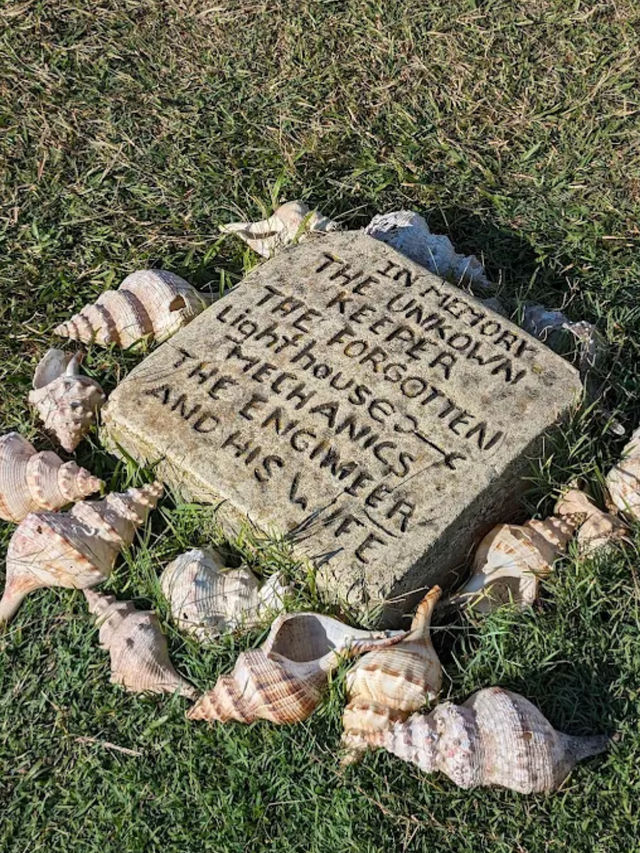 IN MEMORY
THE UNKOWN
KEEPER
THE FORGOTTEN
Lighthouse
MECHANICS
THE ENGINEER
AND HIS WIFE